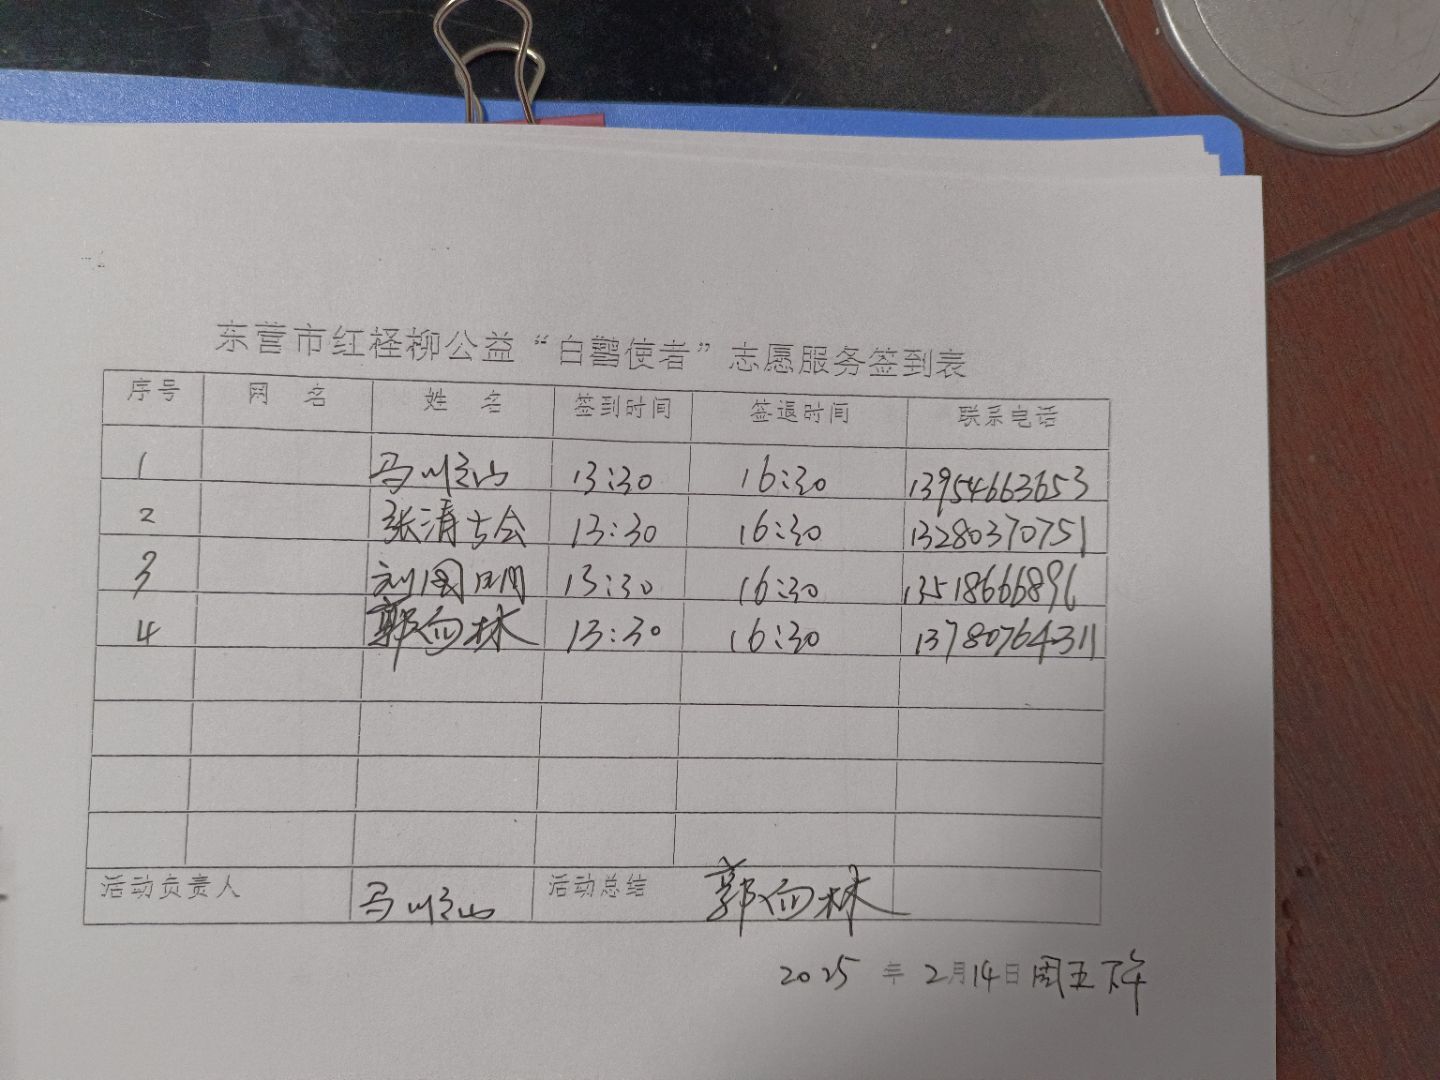 东营市红柽柳公益“白鹳使者”志愿服务签到表
序号 网 名 姓 名 签到时间 签退时间 联系电话
1 马顺山 13:30 16:30 13954663653
2 张清吉会 13:30 16:30 13280370751
3 刘国明 13:30 16:30 13518666896
4 郭向林 13:30 16:30 13780764311
活动负责人 马顺山 活动总结 郭向林
2025 年 2月14日周五下午